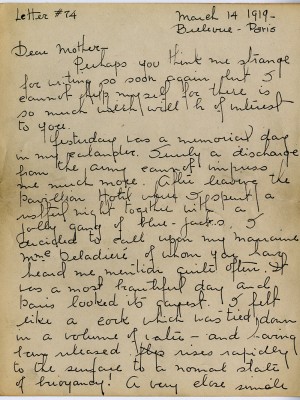 Letter #74
March 14 1919-
Bellevue - Paris
Dear Mother-
Perhaps you think me strange
for writing so soon again, but I
cannot help myself for there is
so much which will be of interest
to you.
Yesterday was a memorial day
in my calander. Surely a discharge
from the army cannot impress
me much more. After leaving the
Pavillion Hotel where I spent a
restful night together with a
jolly gang of blue-jacks. I
decided to call upon my marraine
Mme Deladiere, of whom you have
heard me mention quite often. It
was a most beautiful day and
Paris looked its gayest. I felt
like a cork which was tied down
in a volume of water - and having
been released rises rapidly
to the surface to a normal state
of buoyancy! A very close simile